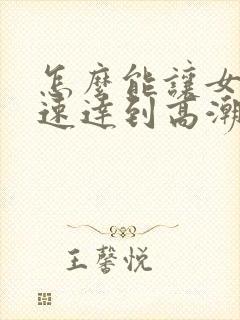 怎麼能讓女
速達到高潮
王馨悦